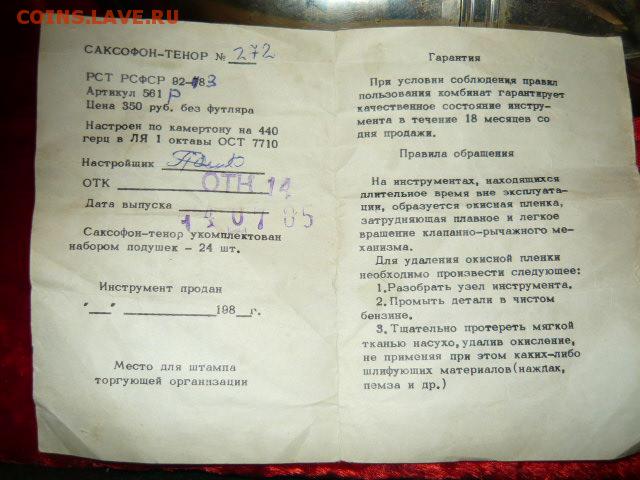 COINS.LAVE.RU
САКСОФОН-ТЕНОР № 272
РСТ РСФСР 82-83
Артикул 561 р
Цена 350 руб. без футляра
Настроен по камертону на 440
герц в ЛЯ 1 октавы ОСТ 7710
Настройщик
ОТК ОТН 14
Дата выпуска
Саксофон-тенор укомплектован
набором подушек - 24 шт.
Инструмент продан
"__" ____________198__г.
Место для штампа
торгующей организации
Гарантия
При условии соблюдения правил
пользования комбинат гарантирует
качественное состояние инстру-
мента в течение 18 месяцев со
дня продажи.
Правила обращения
На инструментах, находящихся
длительное время вне эксплуата-
ции, образуется окисная пленка,
затрудняющая плавное и легкое
вращение клапанно-рычажного ме-
ханизма.
Для удаления окисной пленки
необходимо произвести следующее:
1.Разобрать узел инструмента.
2.Промыть детали в чистом
бензине.
3.Тщательно протереть мягкой
тканью насухо, удалив окисление,
не применяя при этом каких-либо
шлифующих материалов(наждак,
пемза и др.)